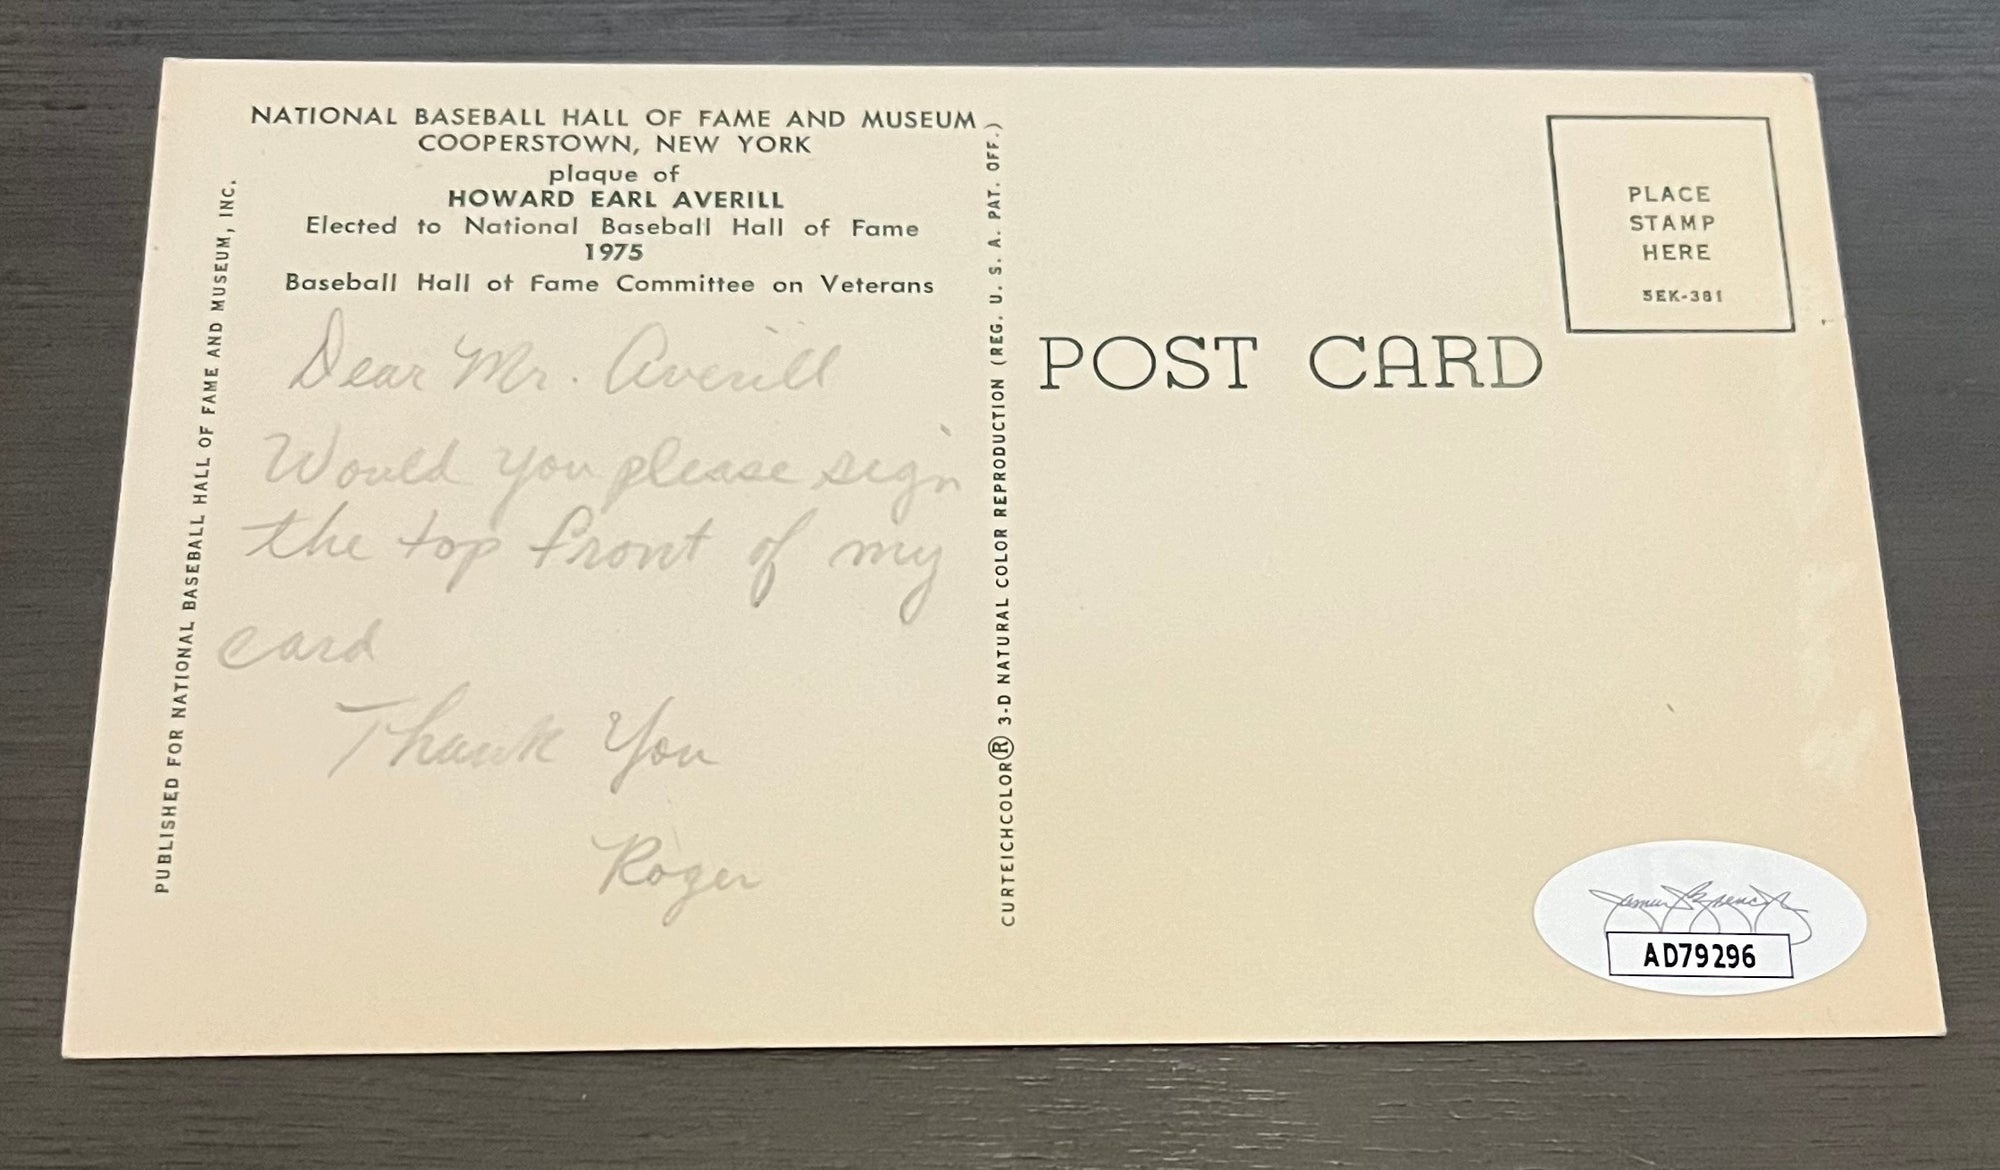 NATIONAL BASEBALL HALL OF FAME AND MUSEUM
COOPERSTOWN, NEW YORK
plaque of
HOWARD EARL AVERILL
Elected to National Baseball Hall of Fame
1975
Baseball Hall of Fame Committee on Veterans
Dear Mr. Averill
Would you please sign
the top front of my
card
Thank You
Roger
PUBLISHED FOR NATIONAL BASEBALL HALL OF FAME AND MUSEUM, INC.
CURTEICHCOLOR® 3-D NATURAL COLOR REPRODUCTION (REG. U. S. A. PAT. OFF.)
POST CARD
PLACE
STAMP
HERE
5EK-381
AD79296